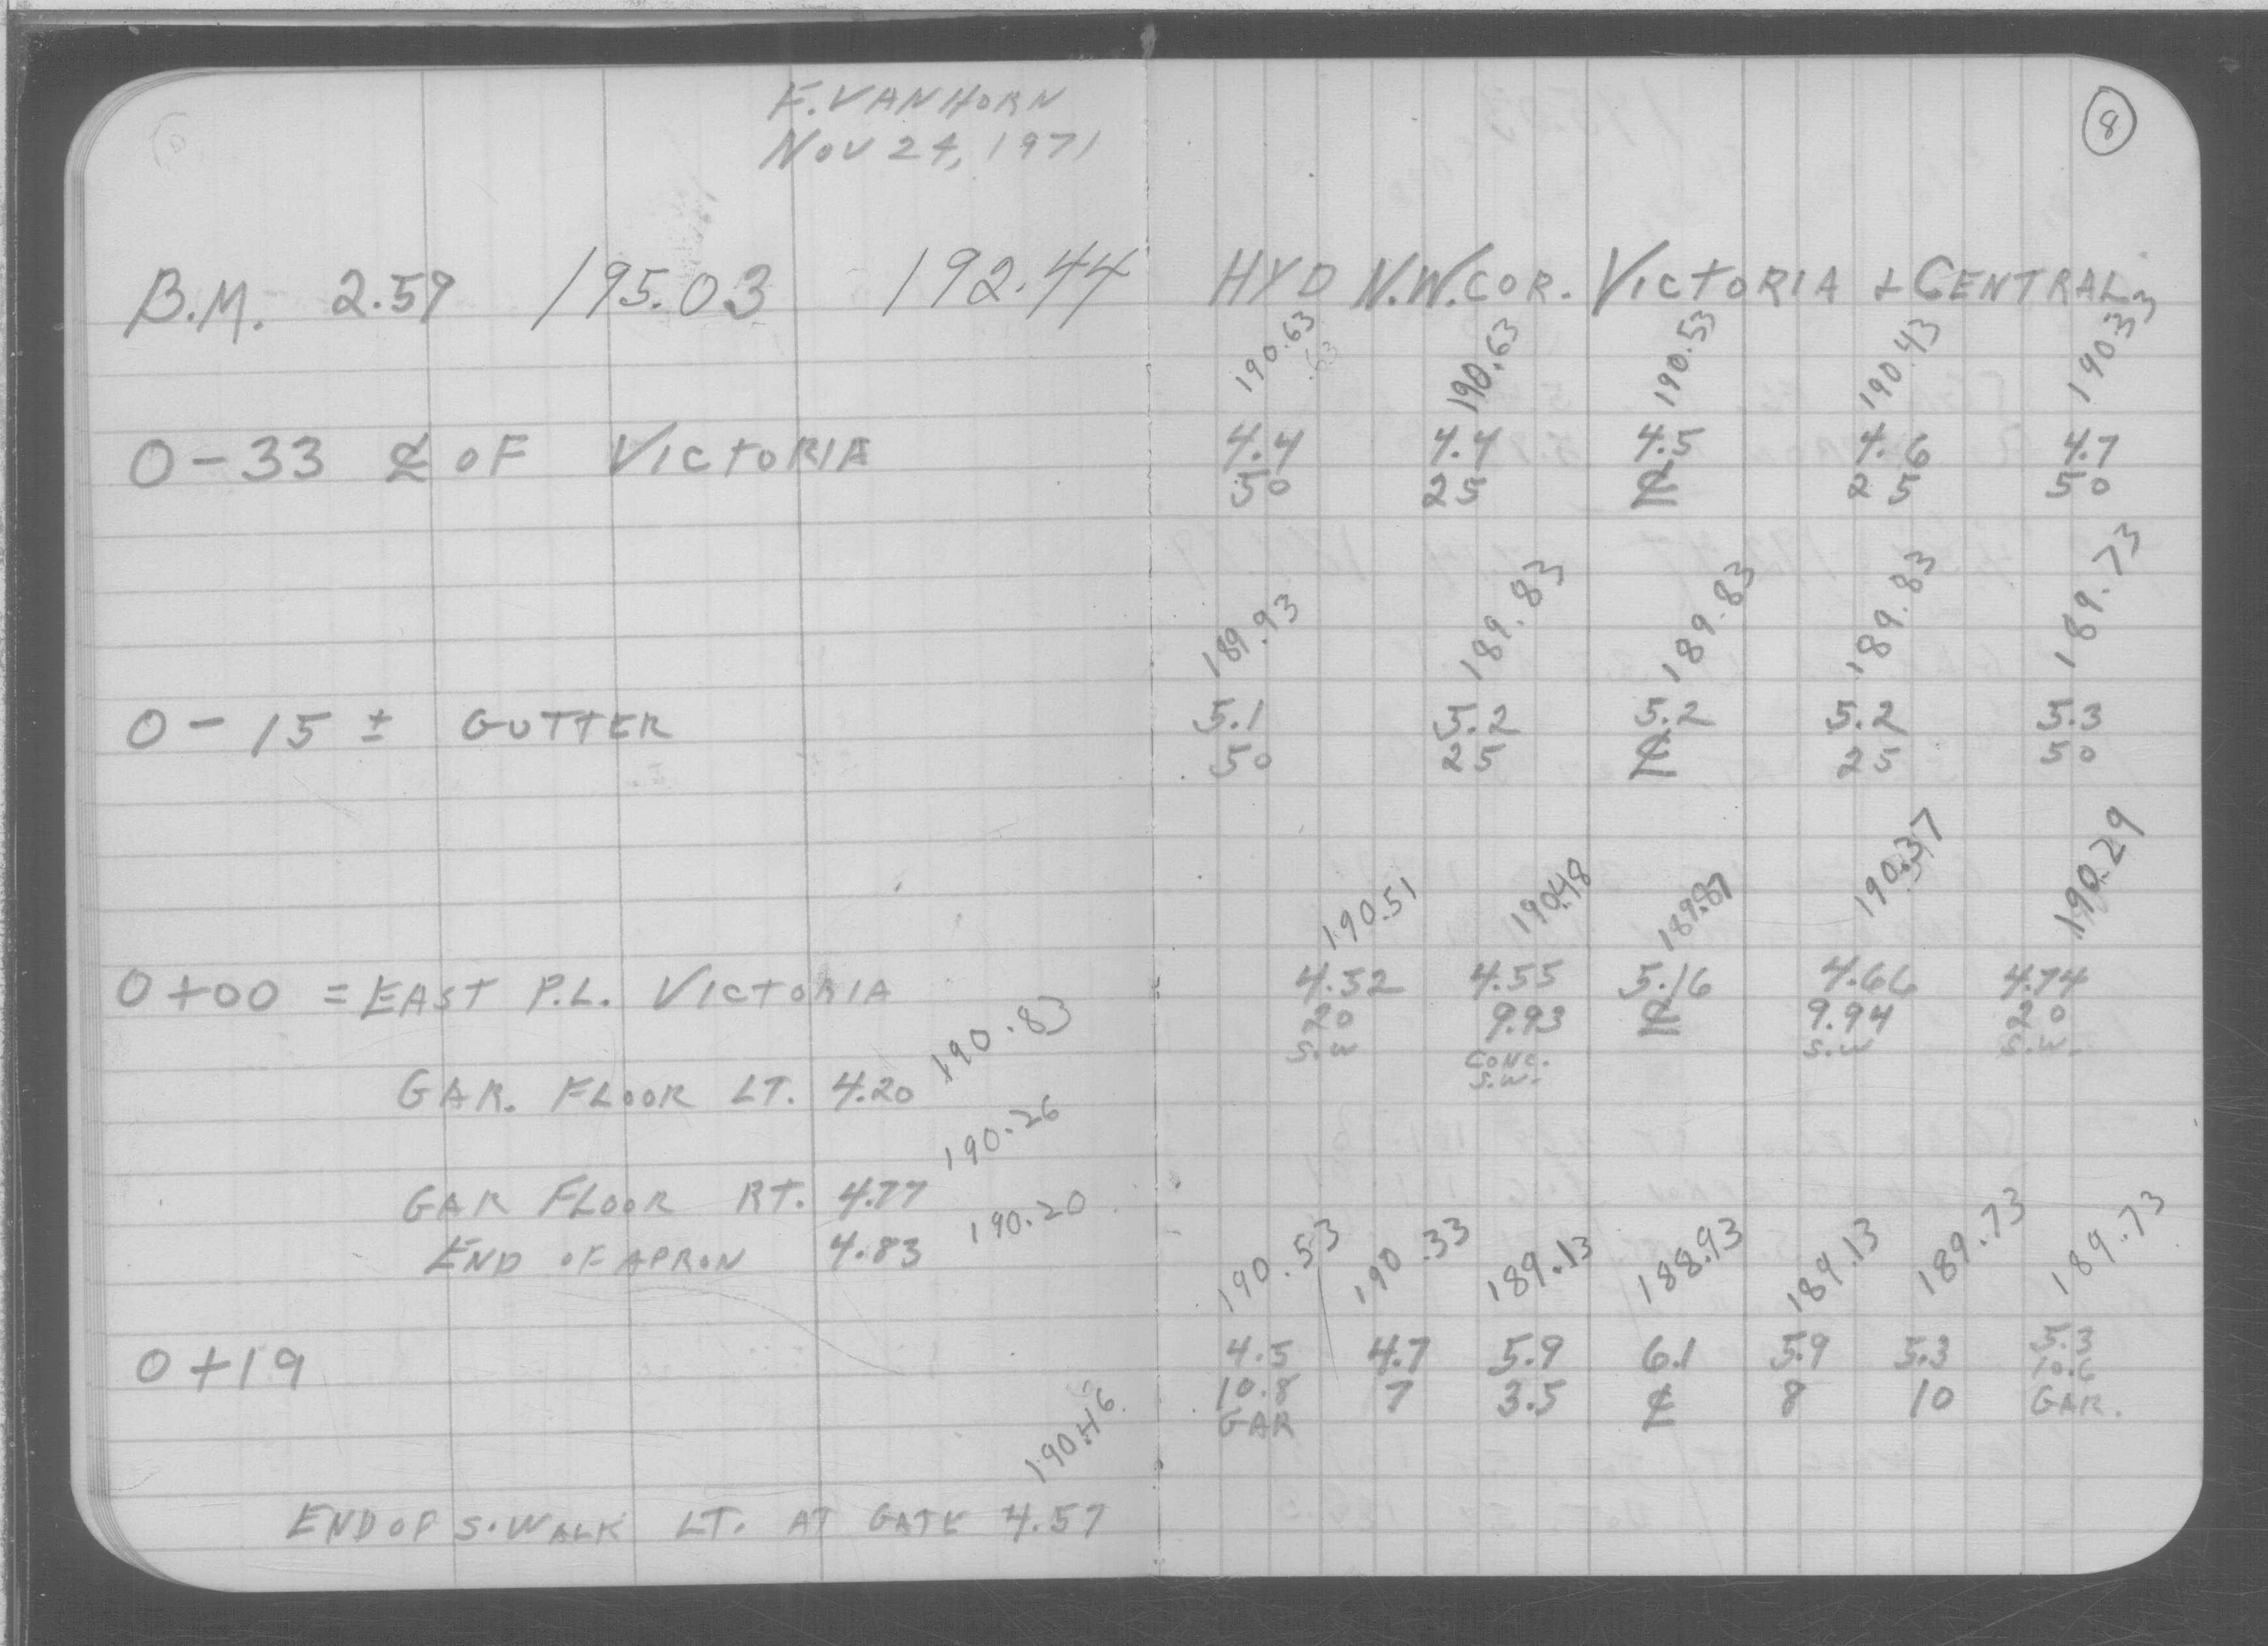 E. VAN HORN
NOV 24, 1971
8
B.M. 2.59 195.03 192.44 HYD N.W. COR. VICTORIA & CENTRAL
190.63 190.63 190.53 190.43 190.33
0-33 ℄ OF VICTORIA 4.4 4.4 4.5 4.6 4.7
50 25 ℄ 25 50
189.93 189.83 189.83 189.83 189.73
0-15 ± GUTTER 5.1 5.2 5.2 5.2 5.3
50 25 ℄ 25 50
190.51 190.48 189.87 190.37 190.29
0+00 = EAST P.L. VICTORIA 4.52 4.55 5.16 4.66 4.74
20 9.93 ℄ 9.94 20
S.W CONC. S.W. S.W S.W.
GAR. FLOOR LT. 4.20 190.83
GAR FLOOR RT. 4.77 190.26
END OF APRON 4.83 190.20
190.53 190.33 189.13 188.93 189.13 189.73 189.73
0+19 4.5 4.7 5.9 6.1 5.9 5.3 5.3
10.8 7 3.5 ℄ 8 10 10.6
GAR GAR.
190.46
END OF S.WALK LT. AT GATE 4.57